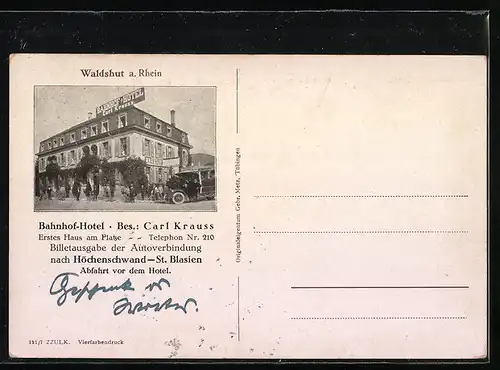 Waldshut a. Rhein
BAHNHOF-HOTEL
Carl Krauss
Bahnhof-Hotel · Bes.: Carl Krauss
Erstes Haus am Platze - - Telephon Nr. 210
Billetausgabe der Autoverbindung
nach Höchenschwand—St. Blasien
Abfahrt vor dem Hotel.
Geschenk v
Originaleigentum Gebr. Metz, Tübingen
ZZULK. Vierfarbendruck